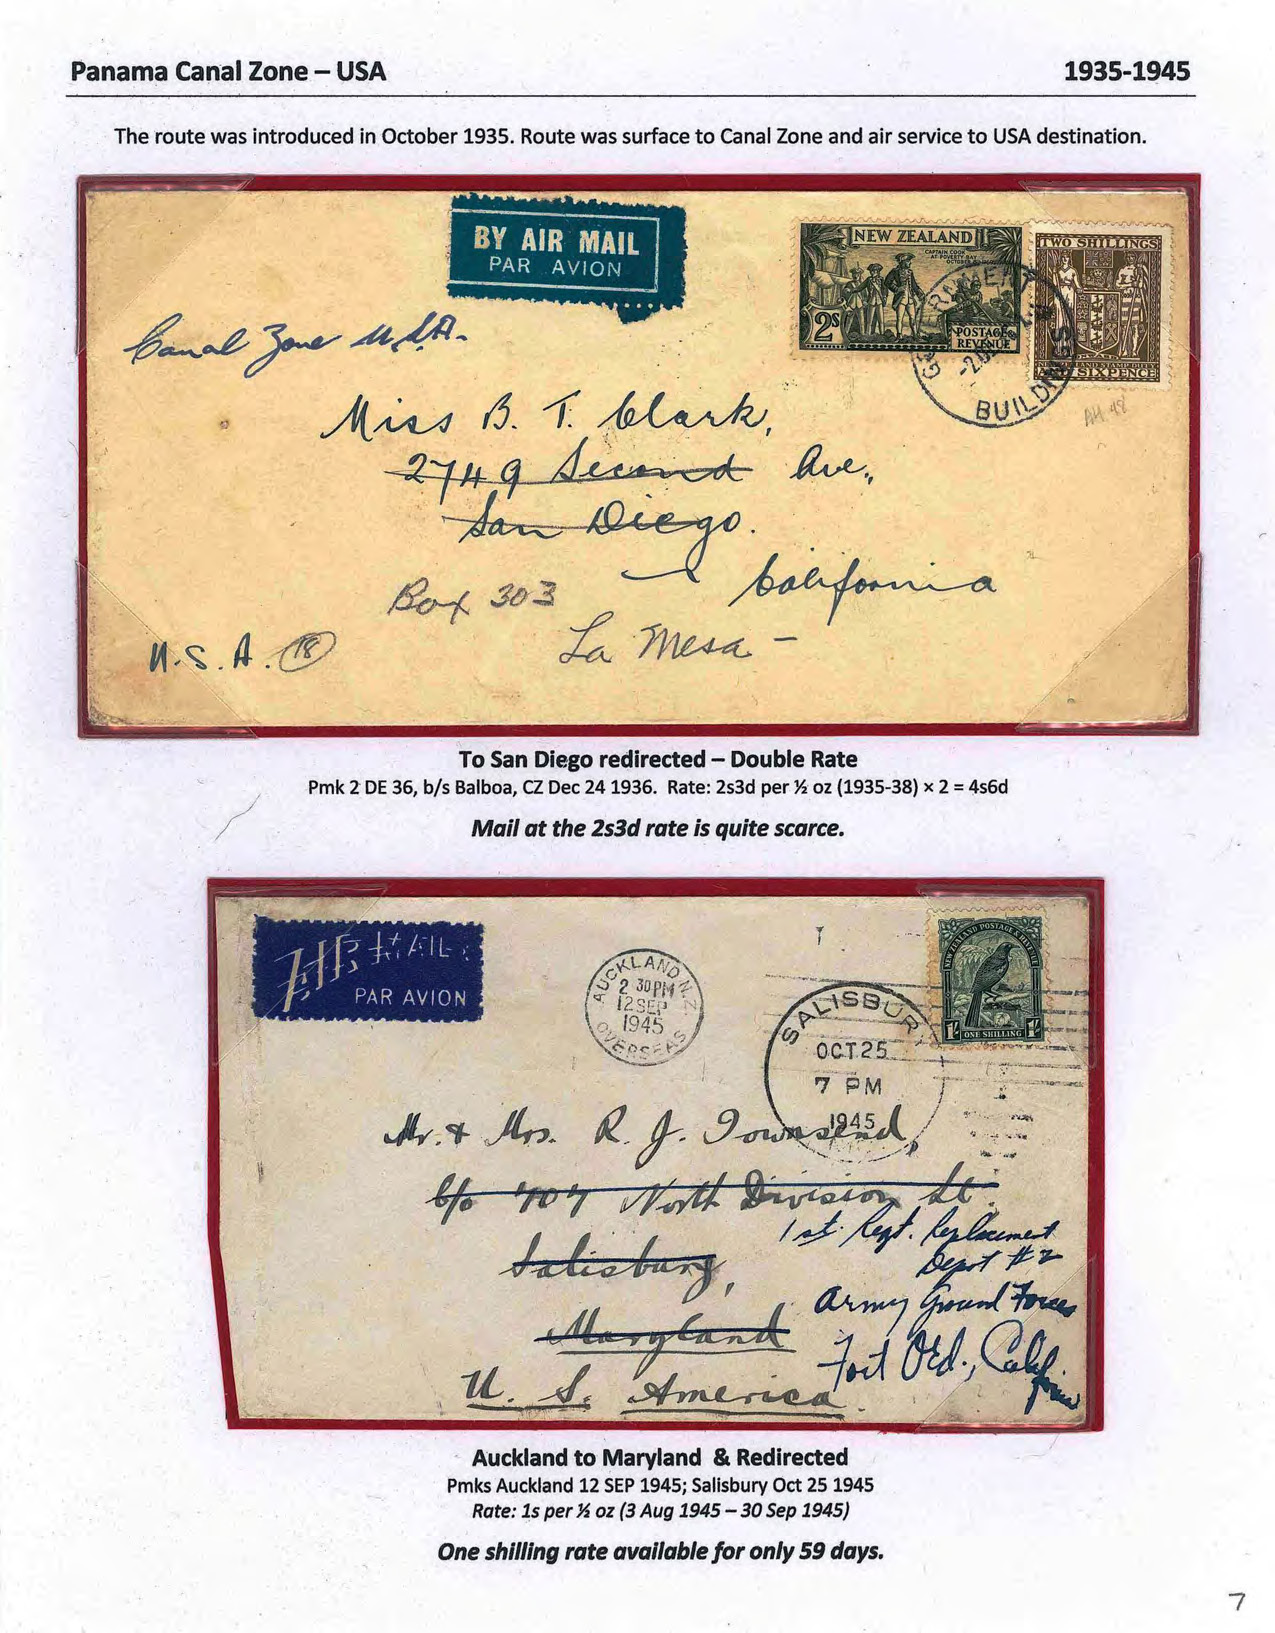 Panama Canal Zone – USA 1935-1945
The route was introduced in October 1935. Route was surface to Canal Zone and air service to USA destination.
BY AIR MAIL
PAR AVION
NEW ZEALAND
CAPTAIN COOK
AT POVERTY BAY
OCTOBER
2s
POSTAGE
REVENUE
TWO SHILLINGS
SIXPENCE
-2 DE
BUILDINGS
Canal Zone U.S.A.
Miss B. T. Clark,
2749 Second Ave.,
San Diego.
California
Box 303
La Mesa –
U.S.A. 18
To San Diego redirected – Double Rate
Pmk 2 DE 36, b/s Balboa, CZ Dec 24 1936. Rate: 2s3d per ½ oz (1935-38) × 2 = 4s6d
Mail at the 2s3d rate is quite scarce.
AIR MAIL
PAR AVION
AUCKLAND N.Z.
2 30PM
12 SEP
1945
OVERSEAS
SALISBURY
OCT 25
7 PM
1945
NEW ZEALAND POSTAGE & REVENUE
1/- ONE SHILLING 1/-
Mr. & Mrs. R. J. Townsend,
c/o 707 North Division St.
Salisbury,
Maryland
U. S. America.
1st. Regt. Replacement
Depot #2
Army Ground Forces
Fort Ord., California
Auckland to Maryland & Redirected
Pmks Auckland 12 SEP 1945; Salisbury Oct 25 1945
Rate: 1s per ½ oz (3 Aug 1945 – 30 Sep 1945)
One shilling rate available for only 59 days.
7